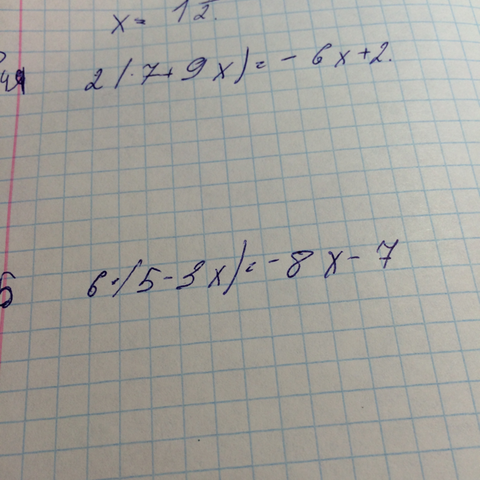 x = 1
2(7+9x) = -6x+2.
6·(5-3x) = -8x-7